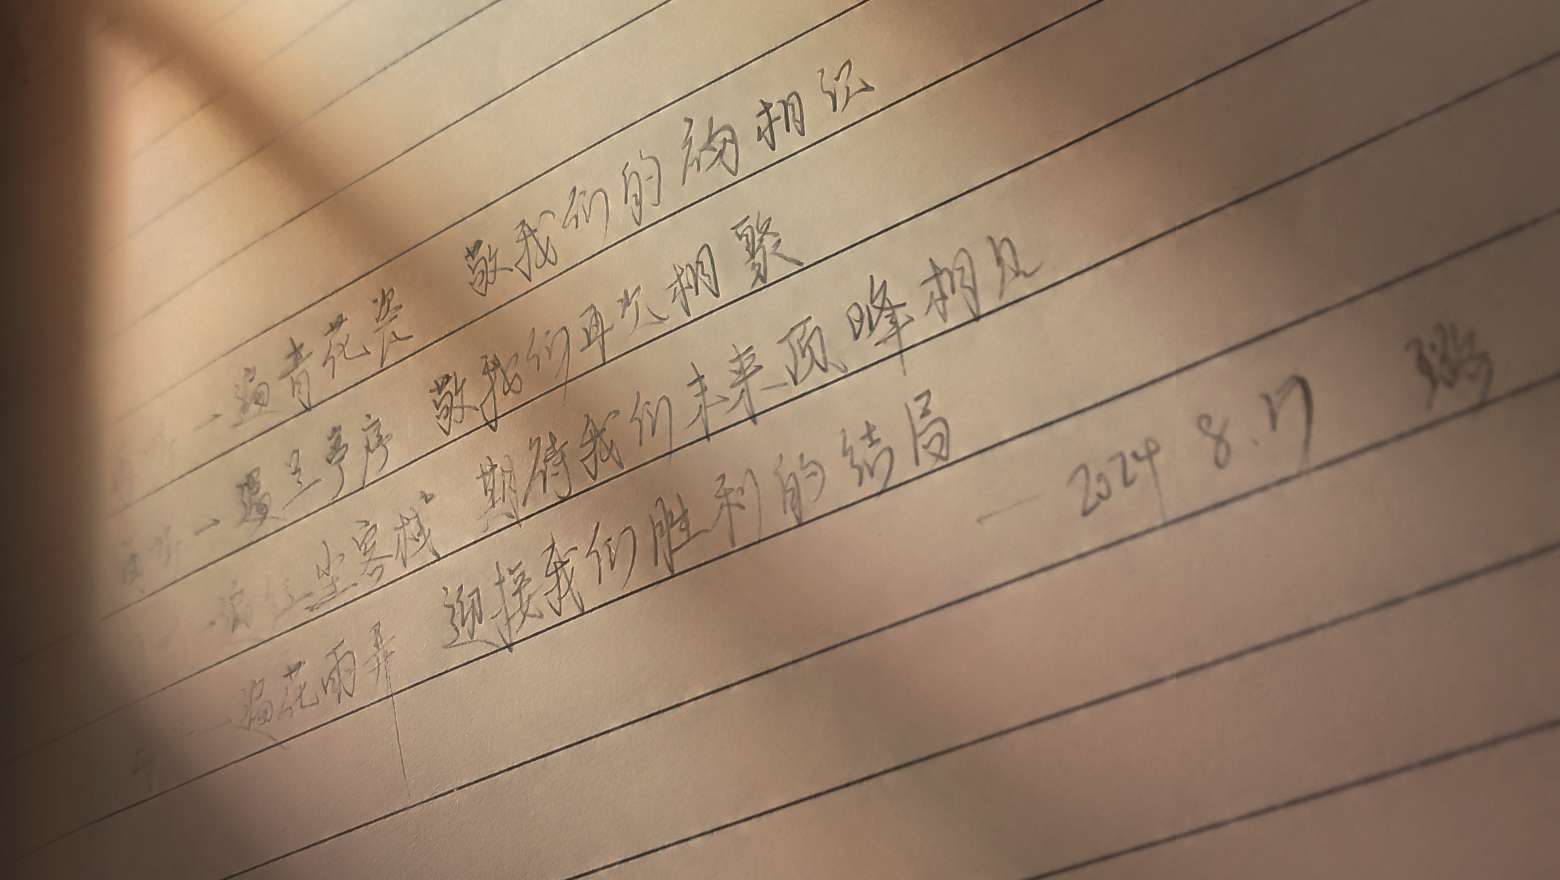 一遍青花瓷 敬我们的初相识
一遍兰亭序 敬我们再次相聚
红尘客栈 期待我们未来顶峰相见
一遍花雨弄 迎接我们胜利的结局
— 2024 8.17